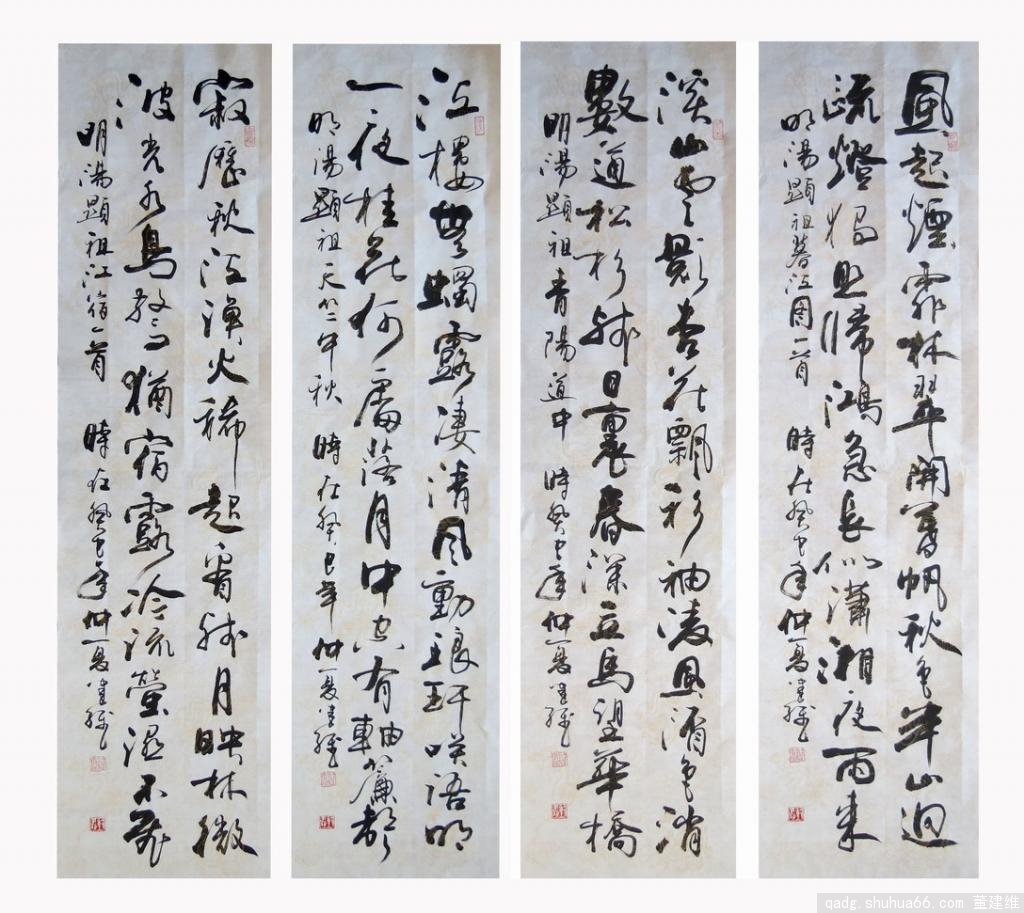 風起煙霏林翠開暮帆秋色半山迴
疏燈獨照歸鴻急長似瀟湘夜雨來
明湯顯祖暮江圖一首 時在癸巳年仲夏建維
溪山雲影杏花飄衫袖凌風酒色消
數道松杉殘日裏春深立馬望華橋
明湯顯祖青陽道中 時癸巳年仲夏建維
江樓無蠋露淒清風動琅玕咲語明
一夜桂花何處落月中空有軸簾聲
明湯顯祖天竺中秋 時在癸巳年仲夏建維
寂歷秋江漁火稀起看殘月映林微
波光水鳥驚猶宿露冷流螢濕不飛
明湯顯祖江宿一首 時在癸巳年仲夏建維
qadg.shuhua66.com 董建维